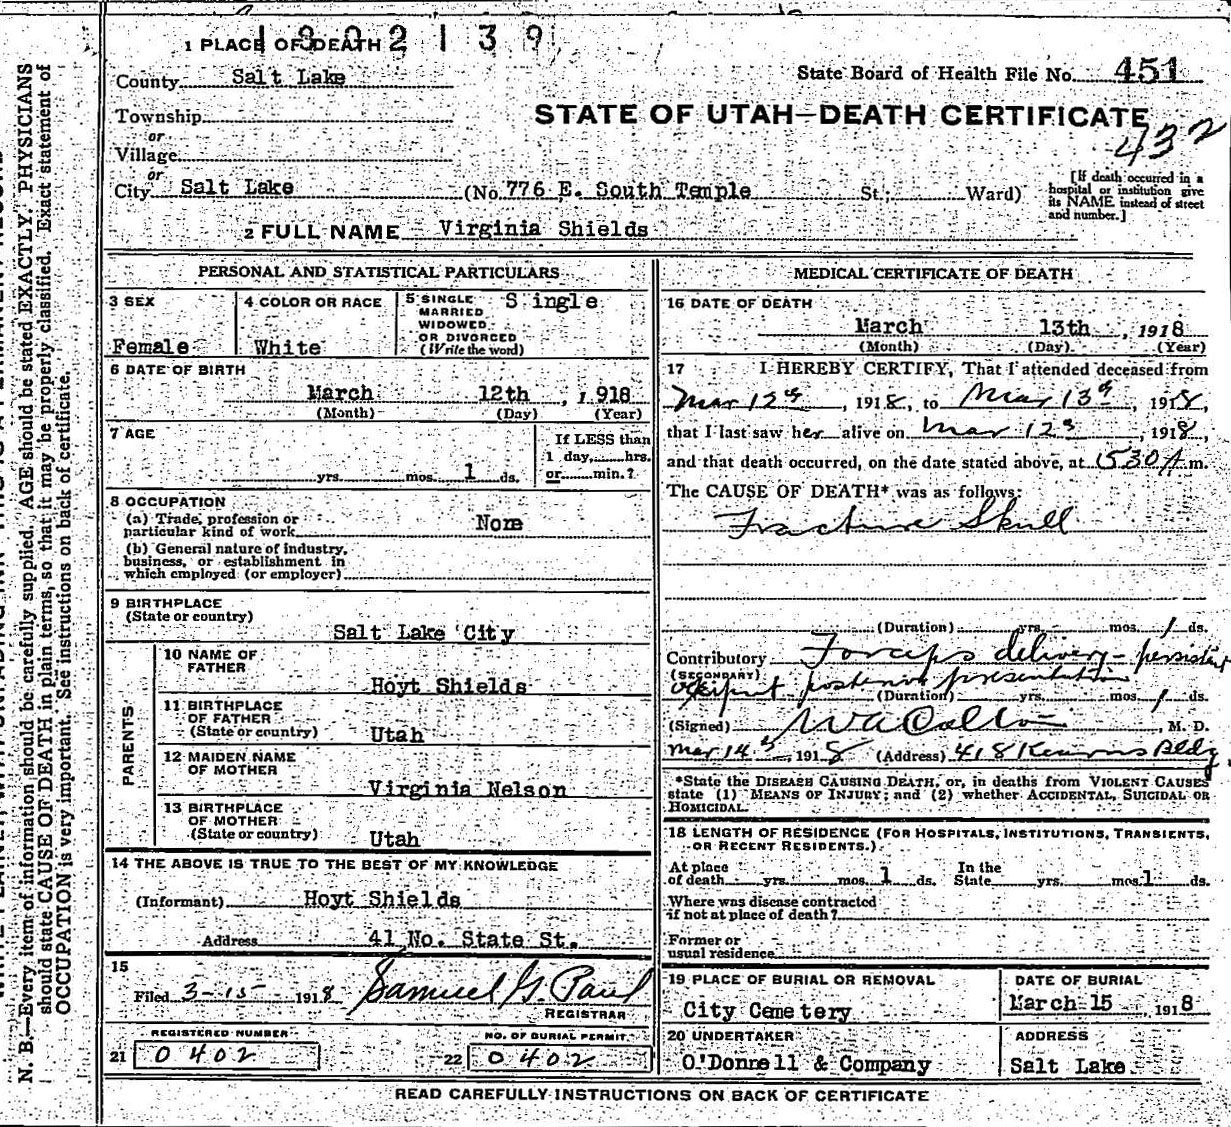 1302139
1 PLACE OF DEATH
County Salt Lake
State Board of Health File No. 451
Township
STATE OF UTAH—DEATH CERTIFICATE
or
432
Village
or
City Salt Lake (No. 776 E. South Temple St.; Ward)
[If death occurred in a
hospital or institution give
its NAME instead of street
and number.]
2 FULL NAME Virginia Shields
PERSONAL AND STATISTICAL PARTICULARS
3 SEX
Female
4 COLOR OR RACE
White
5 SINGLE
MARRIED
WIDOWED
OR DIVORCED
(Write the word)
Single
6 DATE OF BIRTH
March 12th, 1918
(Month) (Day) (Year)
7 AGE
yrs. mos. 1 ds.
If LESS than
1 day, hrs.
or min.?
8 OCCUPATION
(a) Trade, profession or
particular kind of work None
(b) General nature of industry,
business, or establishment in
which employed (or employer)
9 BIRTHPLACE
(State or country)
Salt Lake City
PARENTS
10 NAME OF
FATHER
Hoyt Shields
11 BIRTHPLACE
OF FATHER
(State or country) Utah
12 MAIDEN NAME
OF MOTHER
Virginia Nelson
13 BIRTHPLACE
OF MOTHER
(State or country) Utah
14 THE ABOVE IS TRUE TO THE BEST OF MY KNOWLEDGE
(Informant) Hoyt Shields
Address 41 No. State St.
15
Filed 3-15 1918 Samuel G. Paul
REGISTRAR
REGISTERED NUMBER
21 0402
NO. OF BURIAL PERMIT
22 0402
MEDICAL CERTIFICATE OF DEATH
16 DATE OF DEATH
March 13th, 1918
(Month) (Day) (Year)
17 I HEREBY CERTIFY, That I attended deceased from
Mar 12th, 1918, to Mar 13th, 1918,
that I last saw her alive on Mar 12th, 1918,
and that death occurred, on the date stated above, at 530 A m.
The CAUSE OF DEATH* was as follows:
Fracture Skull
(Duration) yrs. mos. 1 ds.
Contributory Forceps delivery - persistent
(SECONDARY)
occiput posterior presentation
(Duration) yrs. mos. 1 ds.
(Signed) M. D.
Mar 14th, 1918 (Address) 418 Kearns Bldg
*State the DISEASE CAUSING DEATH, or, in deaths from VIOLENT CAUSES
state (1) MEANS OF INJURY; and (2) whether ACCIDENTAL, SUICIDAL OR
HOMICIDAL.
18 LENGTH OF RESIDENCE (FOR HOSPITALS, INSTITUTIONS, TRANSIENTS,
OR RECENT RESIDENTS.)
At place
of death yrs. mos. 1 ds.
In the
State yrs. mos. 1 ds.
Where was disease contracted
if not at place of death?
Former or
usual residence
19 PLACE OF BURIAL OR REMOVAL
City Cemetery
DATE OF BURIAL
March 15 1918
20 UNDERTAKER
O'Donnell & Company
ADDRESS
Salt Lake
READ CAREFULLY INSTRUCTIONS ON BACK OF CERTIFICATE
N. B.—Every item of information should be carefully supplied. AGE should be stated EXACTLY. PHYSICIANS
should state CAUSE OF DEATH in plain terms, so that it may be properly classified. Exact statement of
OCCUPATION is very important. See instructions on back of certificate.